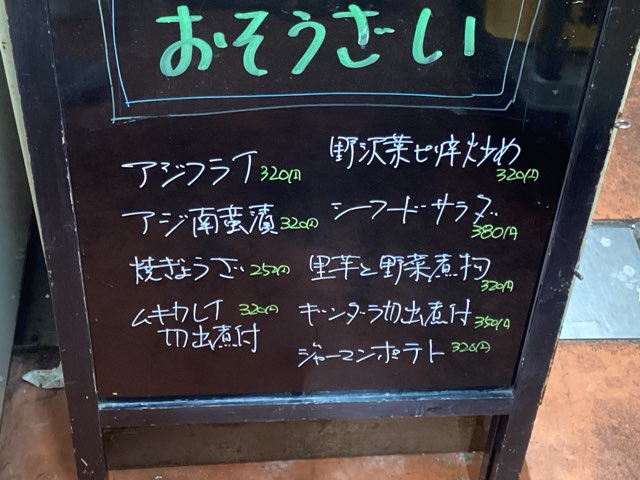 おそうざい
アジフライ 320円
アジ南蛮漬 320円
焼ぎょうざ 252円
ムキカレイ 320円
切出煮付
野沢菜ピリ辛炒め
320円
シーフードサラダ
380円
里芋と野菜煮物
320円
ギンダラ切出煮付 350円
ジャーマンポテト 320円